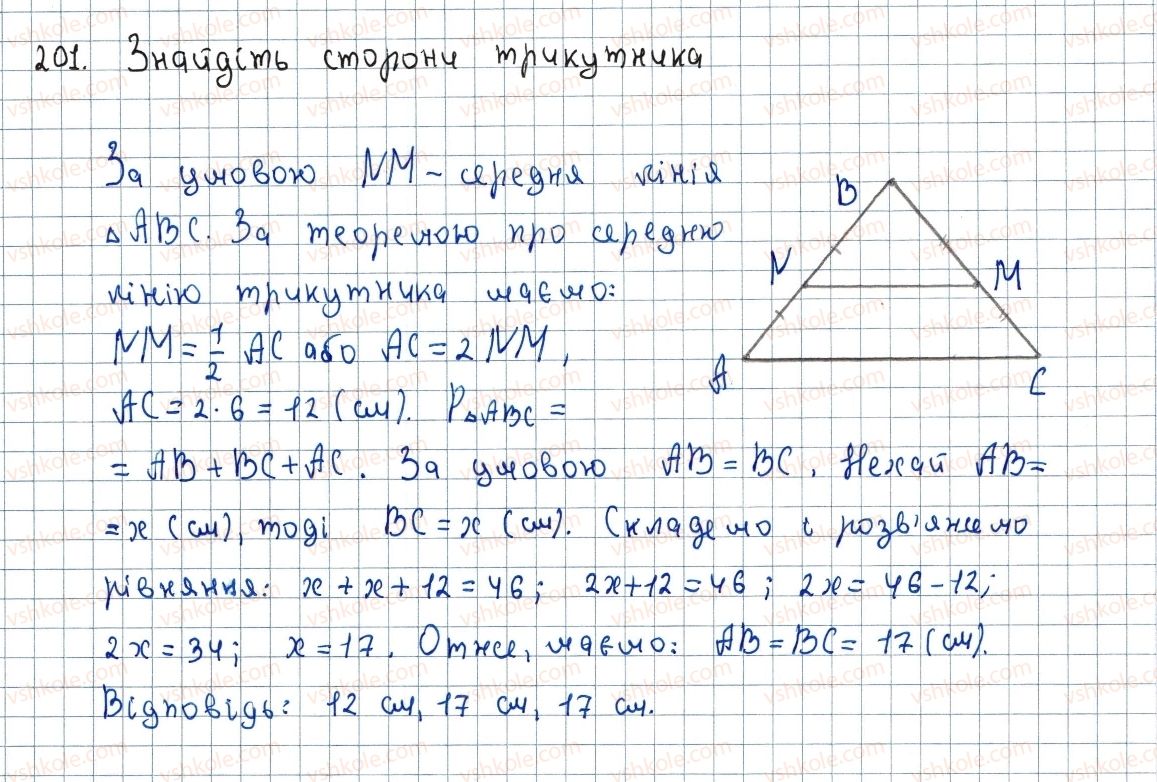 201. Знайдіть сторони трикутника
За умовою NM - середня лінія
△ABC. За теоремою про середню
лінію трикутника маємо:
NM = 1/2 AC або AC = 2 NM,
AC = 2 · 6 = 12 (см). P△ABC =
= AB + BC + AC. За умовою AB = BC. Нехай AB =
= x (см), тоді BC = x (см). Складемо і розв'яжемо
рівняння: x + x + 12 = 46; 2x + 12 = 46; 2x = 46 - 12;
2x = 34; x = 17. Отже, маємо: AB = BC = 17 (см).
Відповідь: 12 см, 17 см, 17 см.
B
N M
A C
vshkole.com